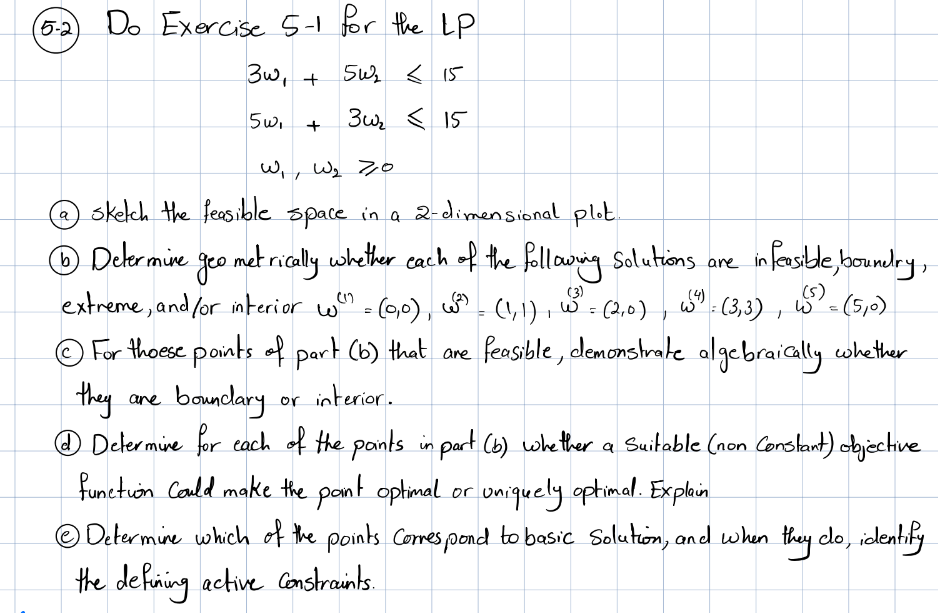 5-2 Do Exercise 5-1 for the LP
3w₁ + 5w₂ ≤ 15
5w₁ + 3w₂ ≤ 15
w₁, w₂ ≥0
(a) sketch the feasible space in a 2-dimensional plot.
(b) Determine geometrically whether each of the following solutions are infeasible, boundry,
extreme, and/or interior w⁽¹⁾ = (0,0), w⁽²⁾ = (1,1), w⁽³⁾ = (2,0), w⁽⁴⁾ = (3,3), w⁽⁵⁾ = (5,0)
(c) For thoese points of part (b) that are feasible, demonstrate algebraically whether
they are boundary or interior.
(d) Determine for each of the points in part (b) whether a suitable (non constant) objective
function could make the point optimal or uniquely optimal. Explain
(e) Determine which of the points correspond to basic solution, and when they do, identify
the defining active constraints.